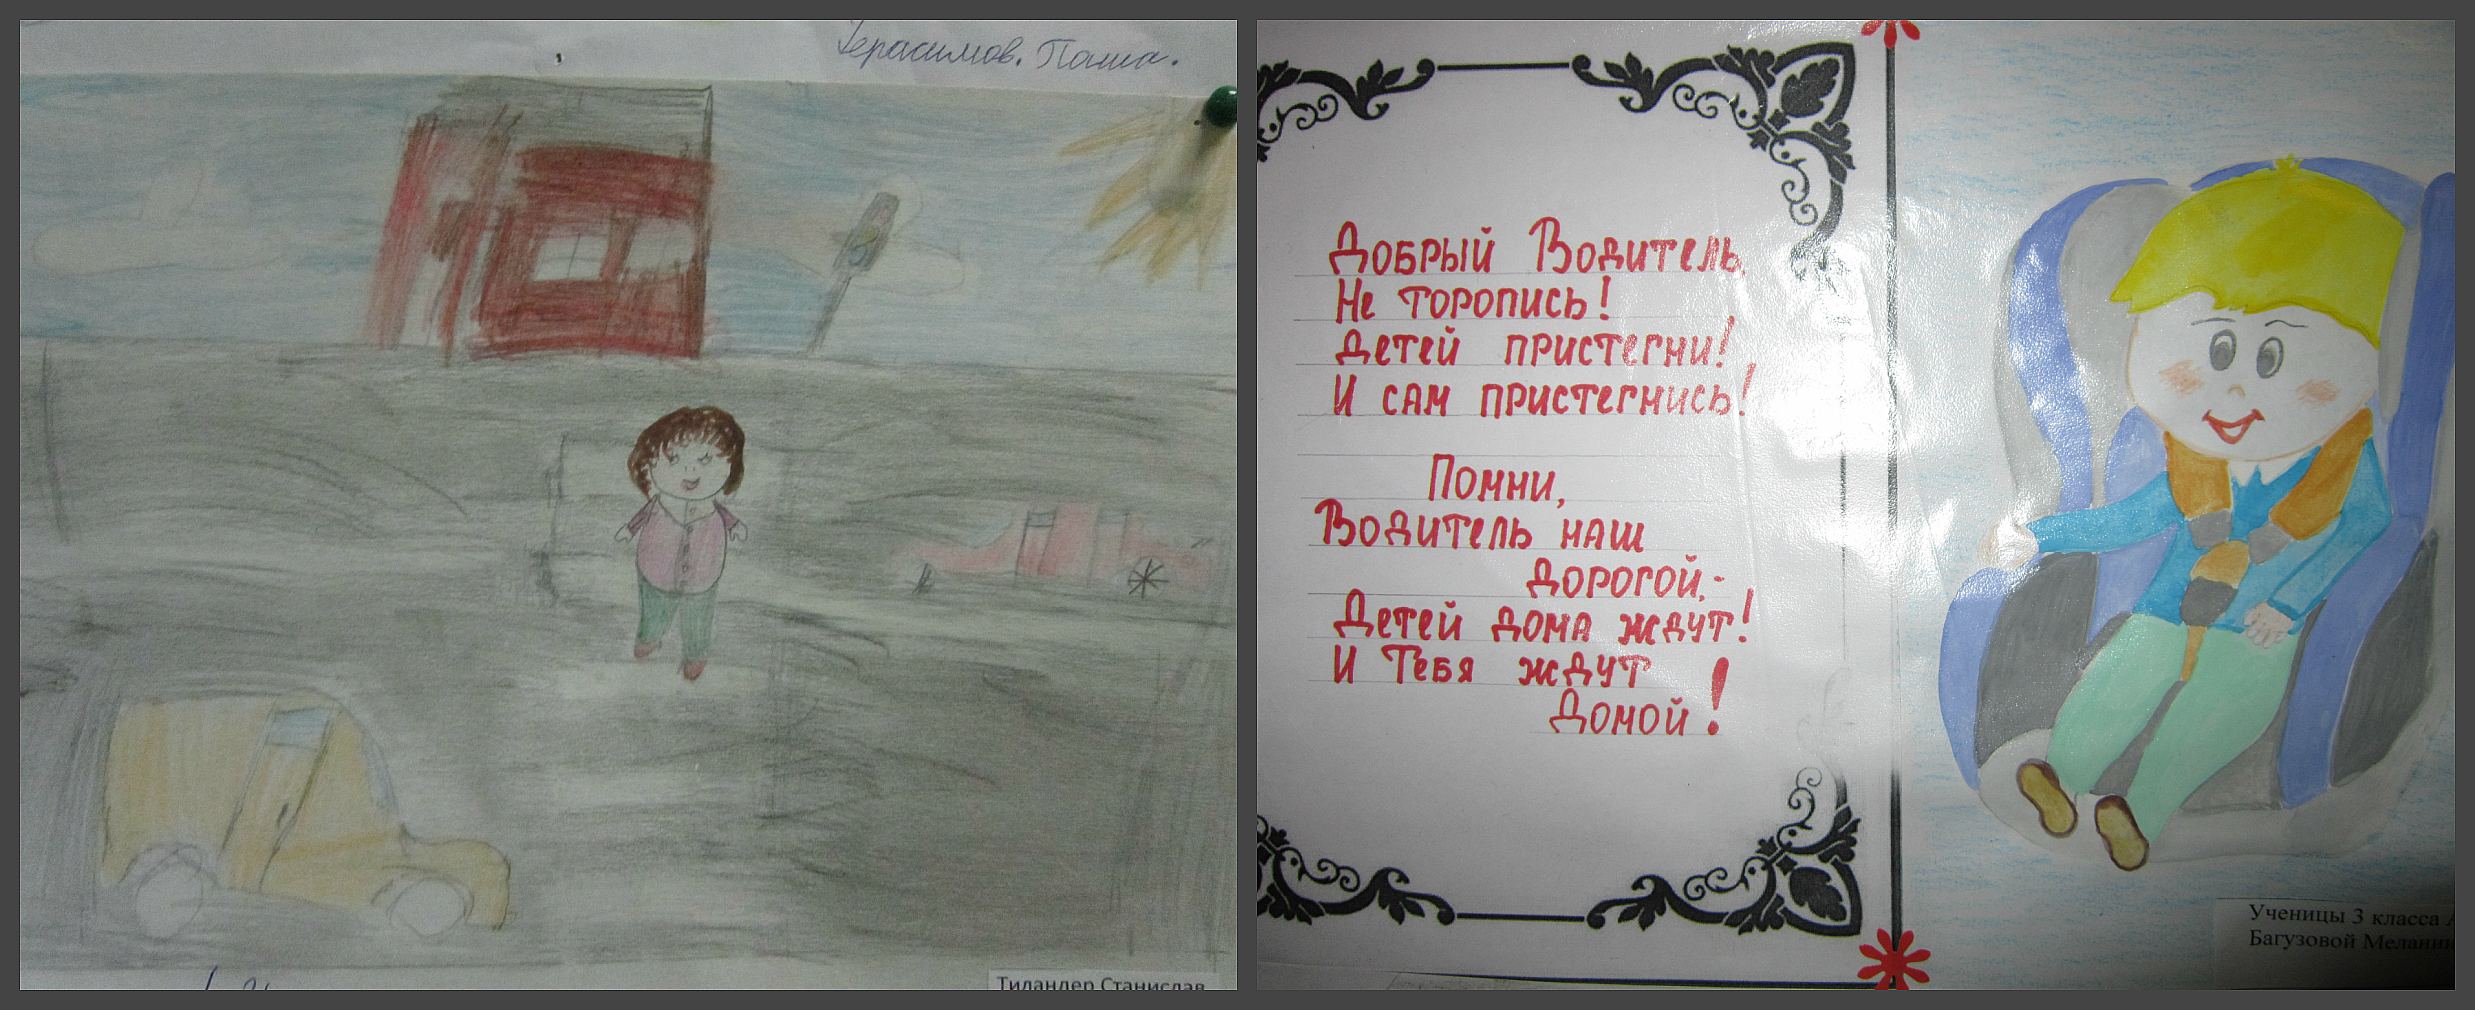 Герасимов. Паша.
Тиландер Станислав
Добрый Водитель,
Не торопись!
Детей пристегни!
И сам пристегнись!
Помни,
Водитель наш
дорогой,-
Детей дома ждут!
И Тебя ждут
Домой!
Ученицы 3 класса
Багузовой Мелании